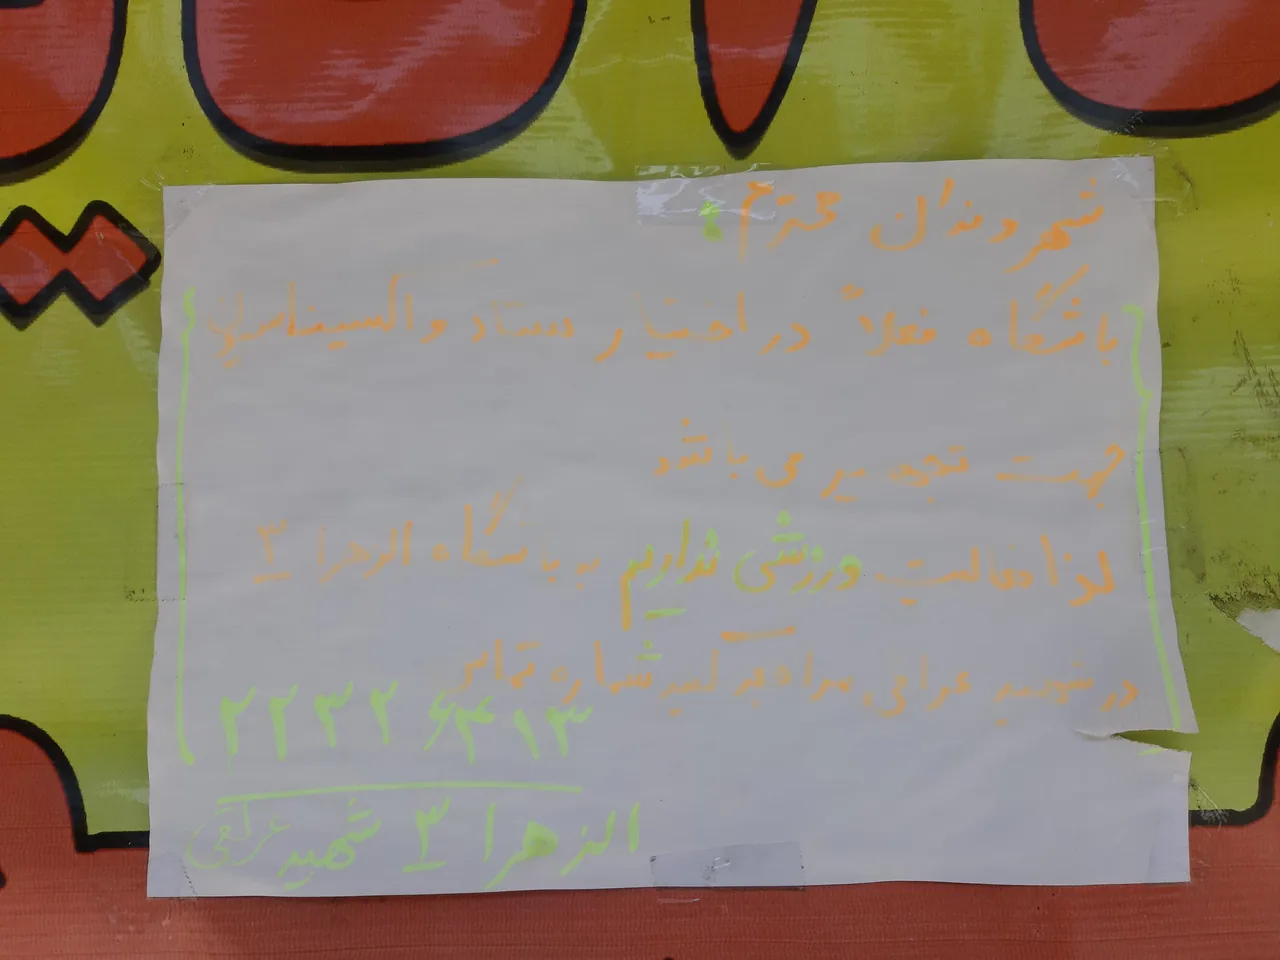 شهروندان محترم:
باشگاه فعلاً در اختیار ستاد واکسیناسیون
جهت تجهیز می باشد
لذا فعالیت ورزشی نداریم به باشگاه الزهرا ۳
در شهید عراقی مراجعه کنید شماره تماس
۲۲۳۲۶۳۱۳
الزهرا ۳ شهید عراقی